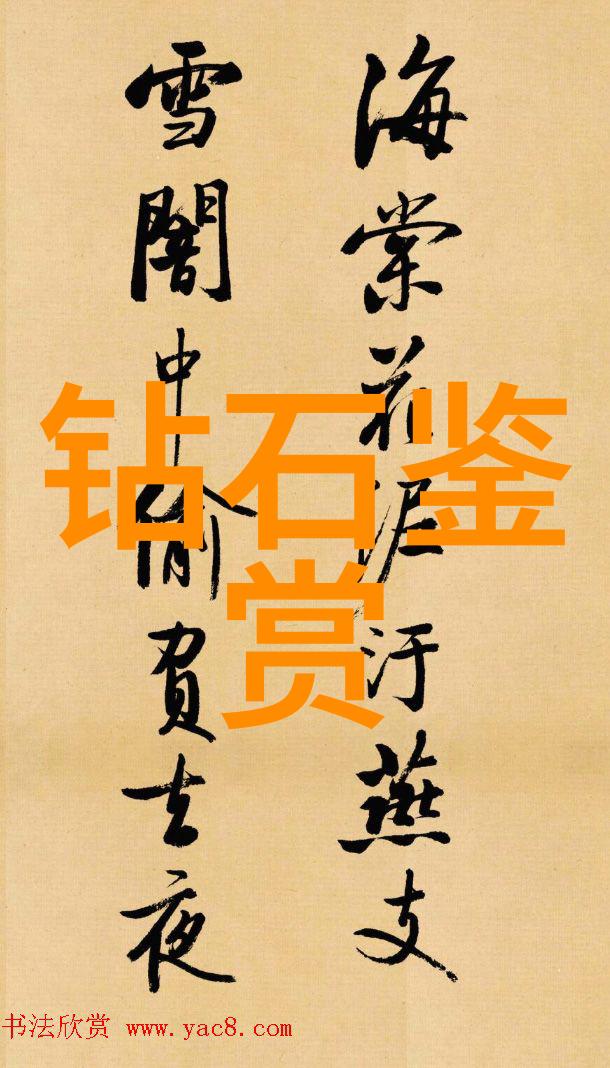 海棠花泥汙燕支
雪闇中偷負去夜
钻石鉴
赏
书法欣赏 www.yac8.com